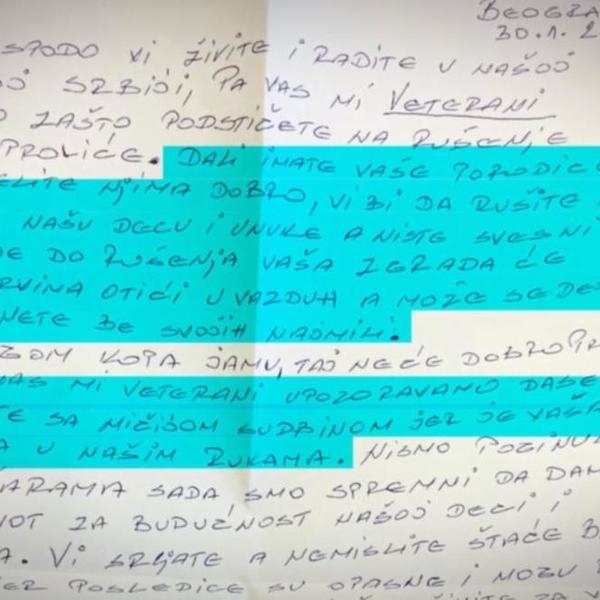 BEOGRA
30.1.2
SPODO VI ŽIVITE I RADITE U NAŠOJ
OJ SRBIJI, PA VAS MI VETERANI
O ZAŠTO PODSTIČETE NA RUŠENJE
PROLIĆE. DALI IMATE VAŠE PORODICE
ELITE NJIMA DOBRO, VI BI DA RUŠITE
NAŠU DECU I UNUKE A NISTE SVESNI
DE DO RUŠENJA VAŠA ZGRADA ĆE
RVINA OTIĆI U VAZDUH A MOŽE SE DE
NETE BE SVOJIH NAJMILI.
GOM KOPA JAMU, TAJ NEĆE DOBRO
VAS MI VETERANI UPOZORAVAMO DASE
TE SA MIČIĆOM SUDBINOM JER JE VAŠA
A U NAŠIM RUKAMA. NISMO POGINUL
ARAMA SADA SMO SPREMNI DA DAM
VOT ZA BUDUĆNOST NAŠOJ DECI I
A. VI SRLJATE A NEMISLITE ŠTAĆE B
JER POSLEDICE SU OPASNE I MOGU